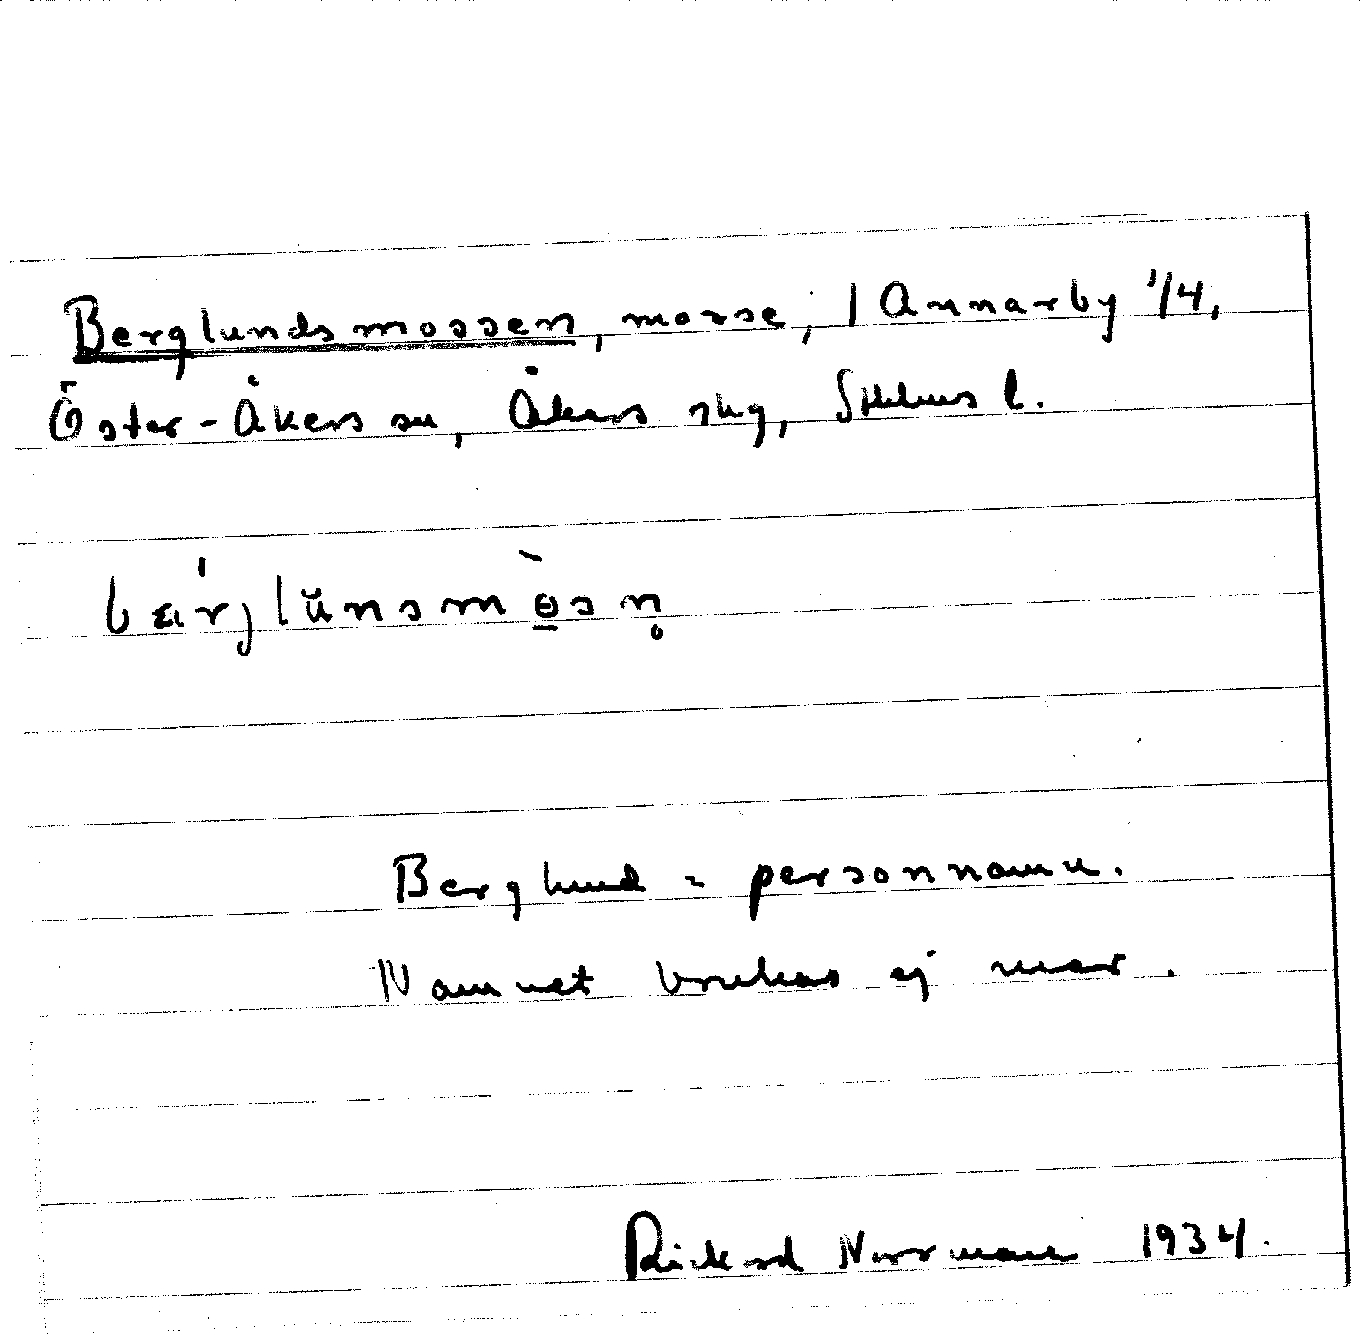 Berglundsmossen, mosse, 1 Annarby 1/4,
Öster-Åkers sn, Åkers skg, Sthlms l.
Berglund = personnamn.
Namnet brukas ej mer.
Rickard Norrman 1934.